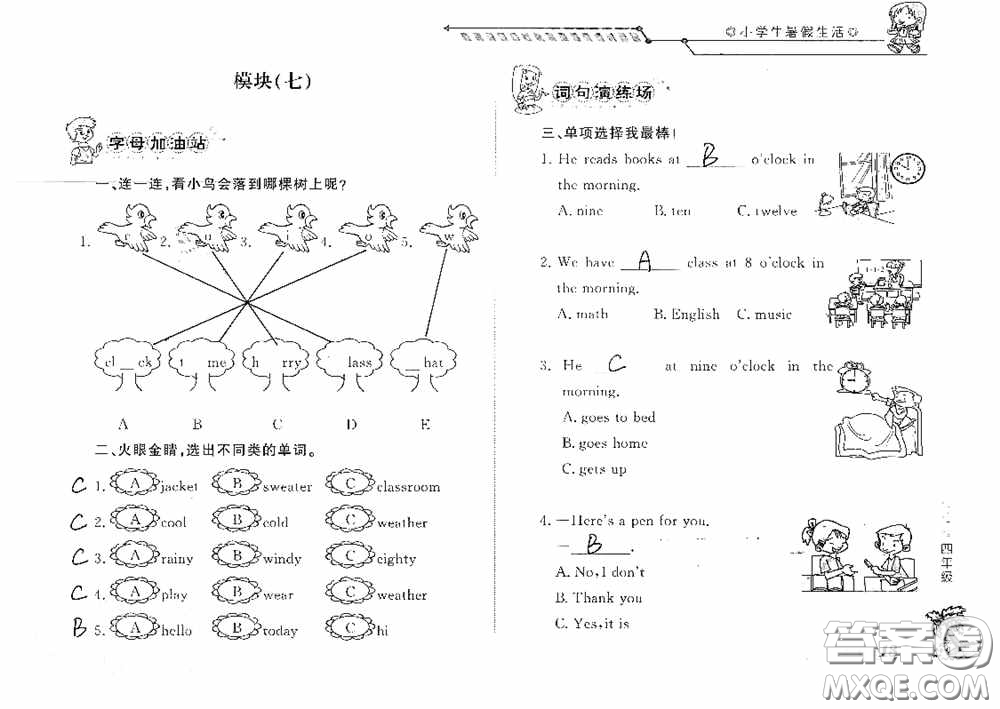 小学生暑假生活
模块(七)
字母加油站
一、连一连,看小鸟会落到哪棵树上呢?
1. 2. 3. 4. 5.
cl__ck t__me h__rry __lass __hat
A B C D E
二、火眼金睛,选出不同类的单词。
C 1. A jacket B sweater C classroom
C 2. A cool B cold C weather
C 3. A rainy B windy C eighty
C 4. A play B wear C weather
B 5. A hello B today C hi
词句演练场
三、单项选择我最棒!
1. He reads books at __B__ o'clock in
the morning.
A. nine B. ten C. twelve
2. We have __A__ class at 8 o'clock in
the morning.
A. math B. English C. music
3. He __C__ at nine o'clock in the
morning.
A. goes to bed
B. goes home
C. gets up
4. —Here's a pen for you.
—__B__.
A. No, I don't
B. Thank you
C. Yes, it is
四年级
答案圈
MXQE.COM